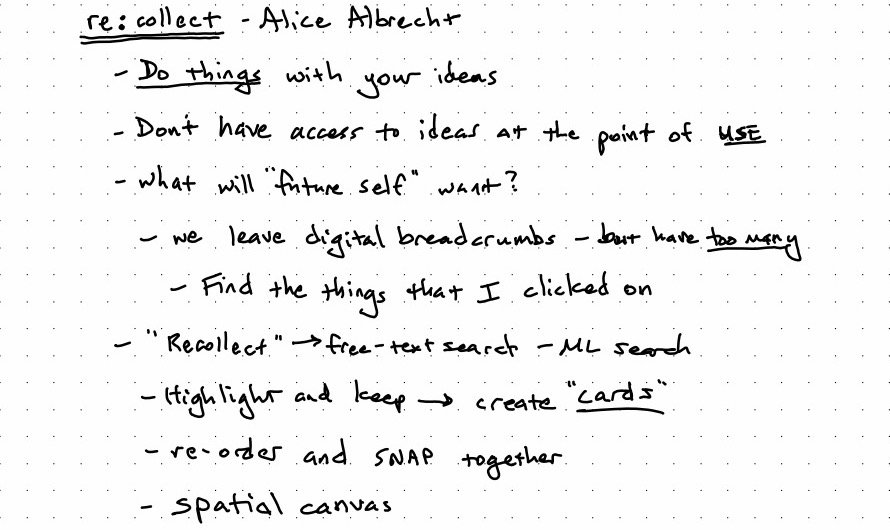 re:collect - Alice Albrecht
- Do things with your ideas
- Don't have access to ideas at the point of USE
- what will "future self" want?
- we leave digital breadcrumbs - but have too many
- Find the things that I clicked on
- "Recollect" → free-text search - ML search
- Highlight and keep → create "cards"
- re-order and SNAP together
- spatial canvas